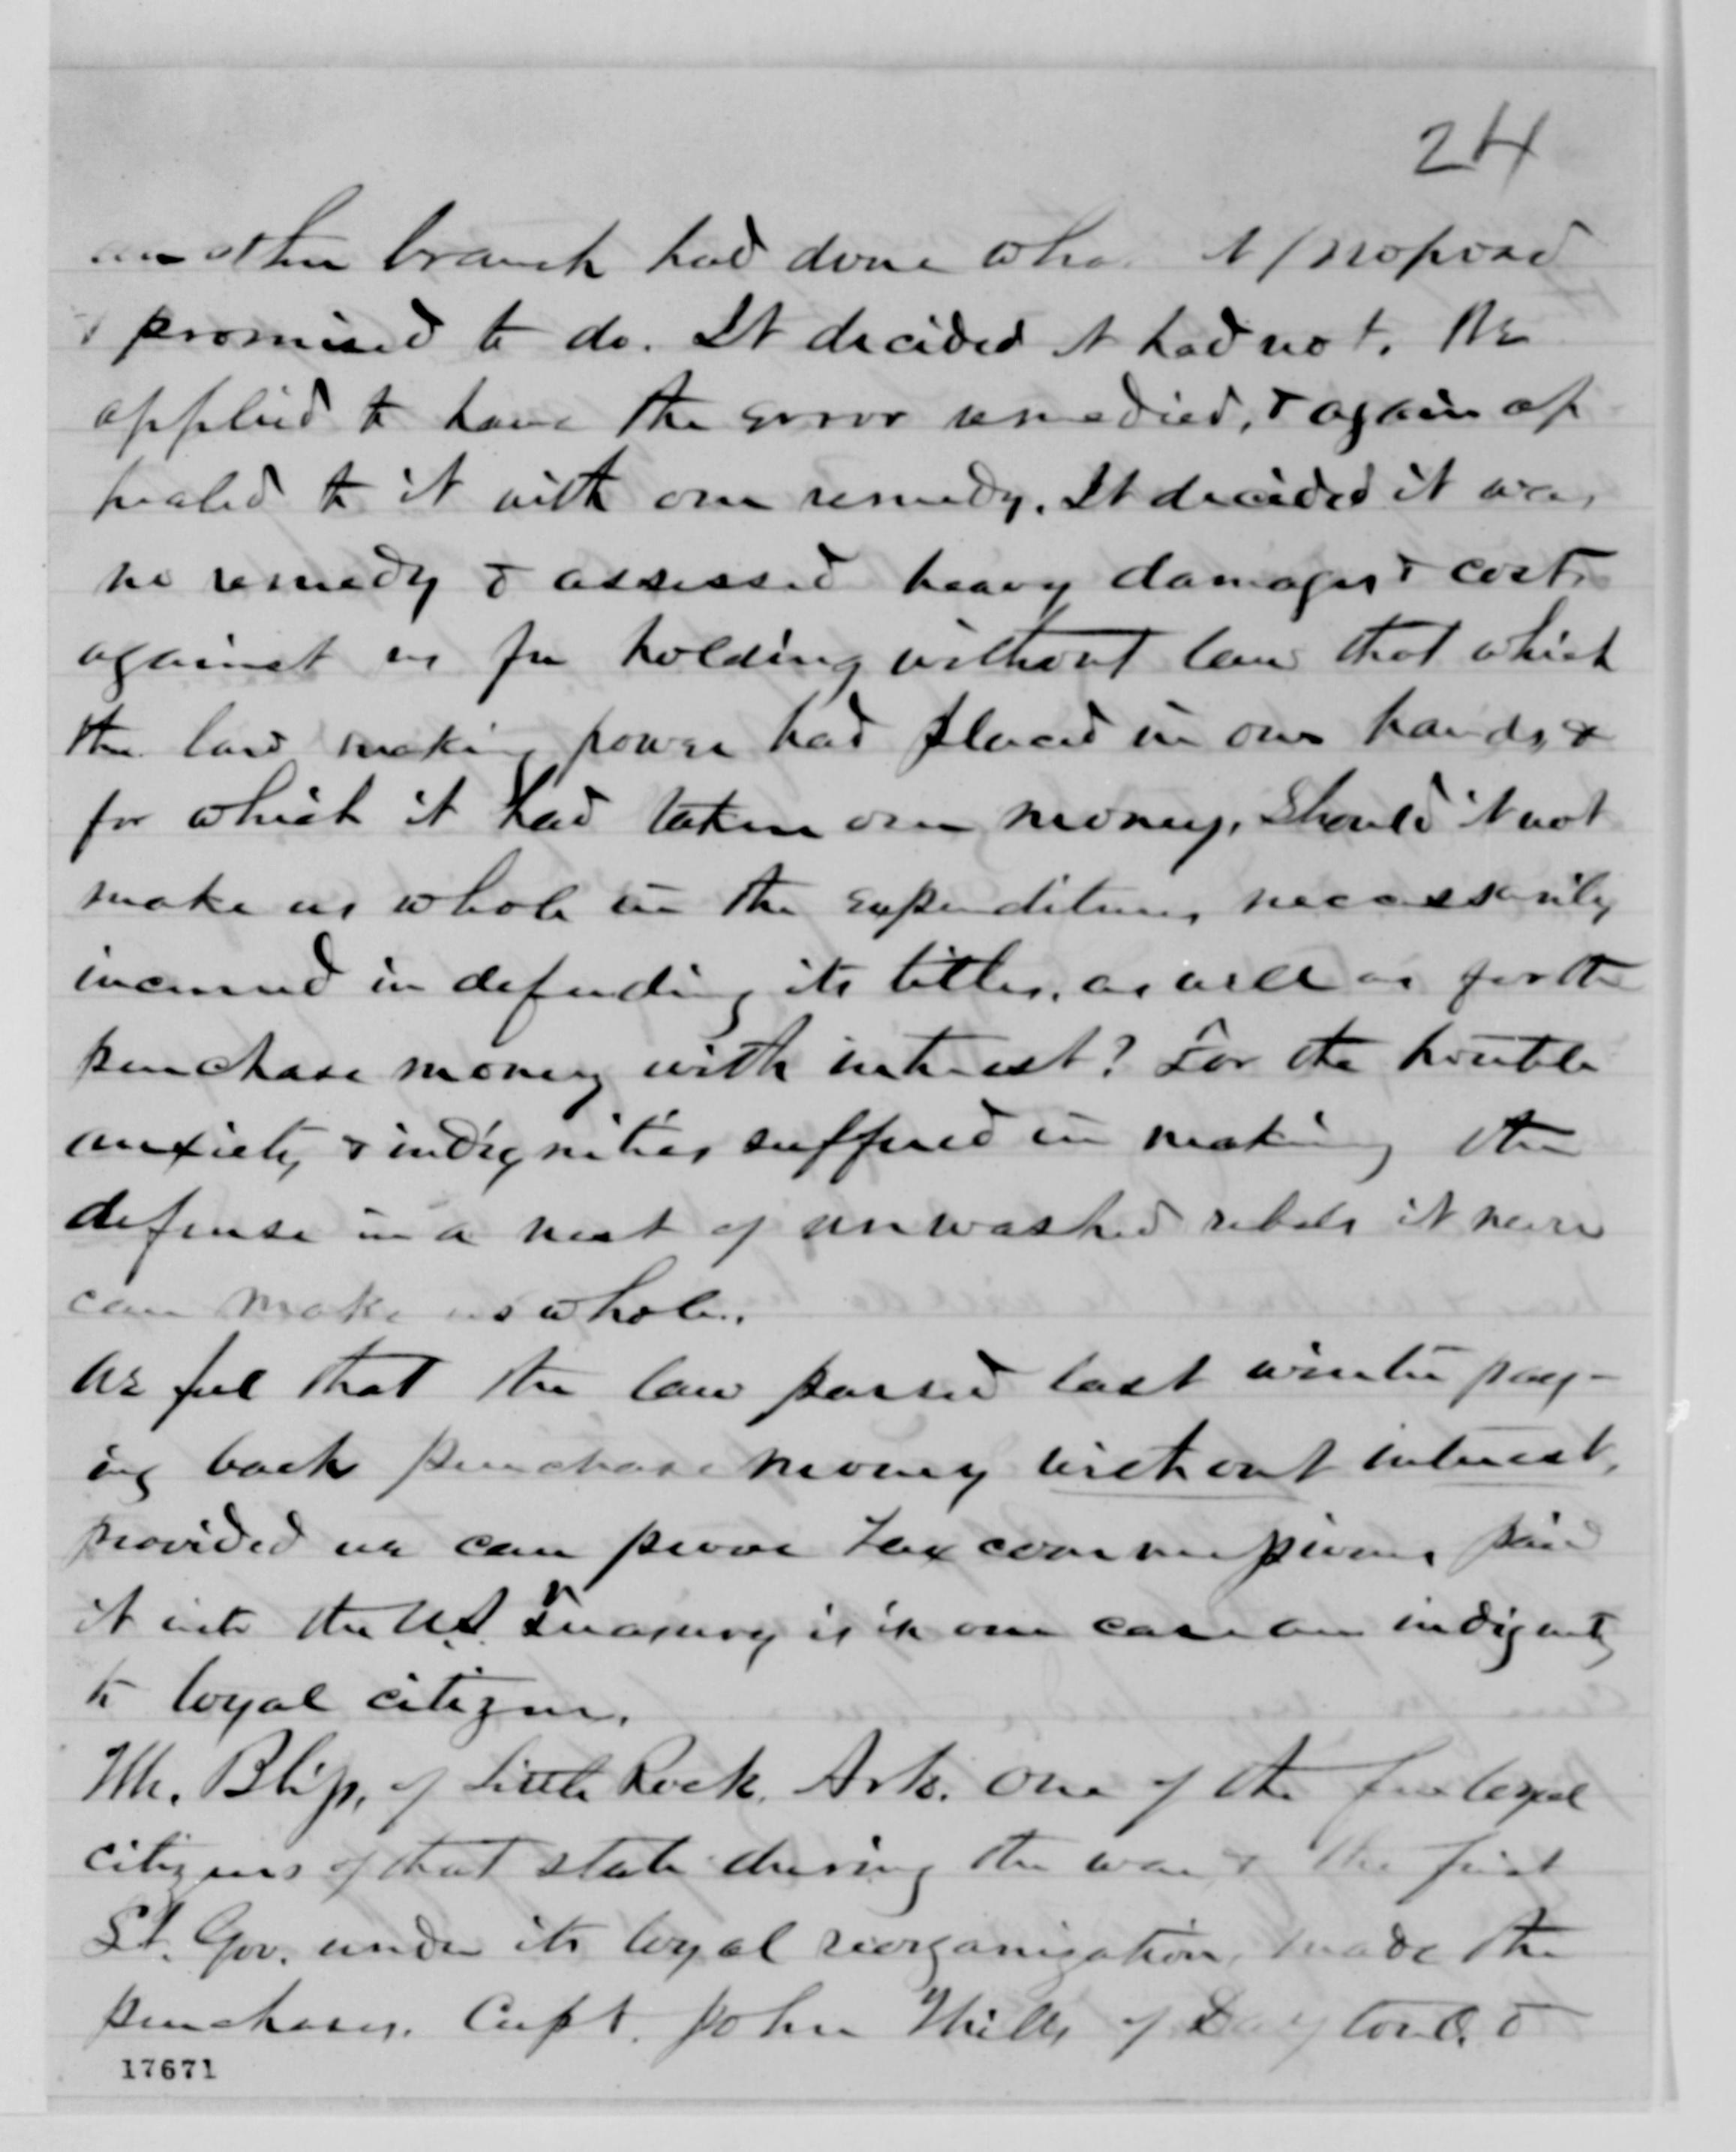 24
another branch had done what it proposed
& promised to do. It decided it had not. We
applied to have the error remedied, & again ap
pealed to it with our remedy. It decided it was
no remedy & assessed heavy damages & costs
against us for holding without law that which
the law making power had placed in our hands, &
for which it had taken our money, Should it not
make us whole in the expenditures necessarily
incurred in defending its titles, as well as for the
purchase money with interest? For the trouble
anxiety & indignities suffered in making the
defense in a nest of unwashed rebels it never
can make us whole.
We feel that the law passed last winter pay-
ing back purchase money without interest,
provided we can prove Tax commissioners paid
it into the U.S. Treasury is in our case an indignity
to loyal citizens.
Mr. Bliss, of Little Rock, Ark. One of the few loyal
citizens of that state during the war & the first
Lt. Gov. under its loyal reorganization, made the
purchases. Capt. John Mills of Dayton O. &
17671